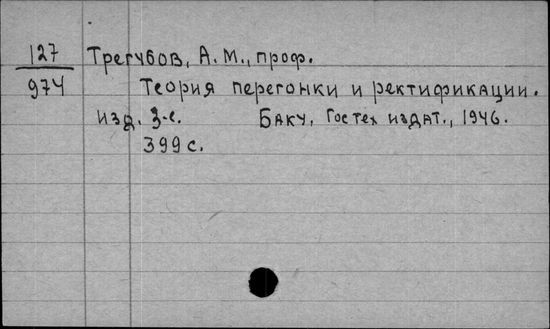 127 Трегубов, А. М., проф.
974 Теория перегонки и ректификации.
изд. 3-е. Баку, Гостехиздат., 1946.
399 с.